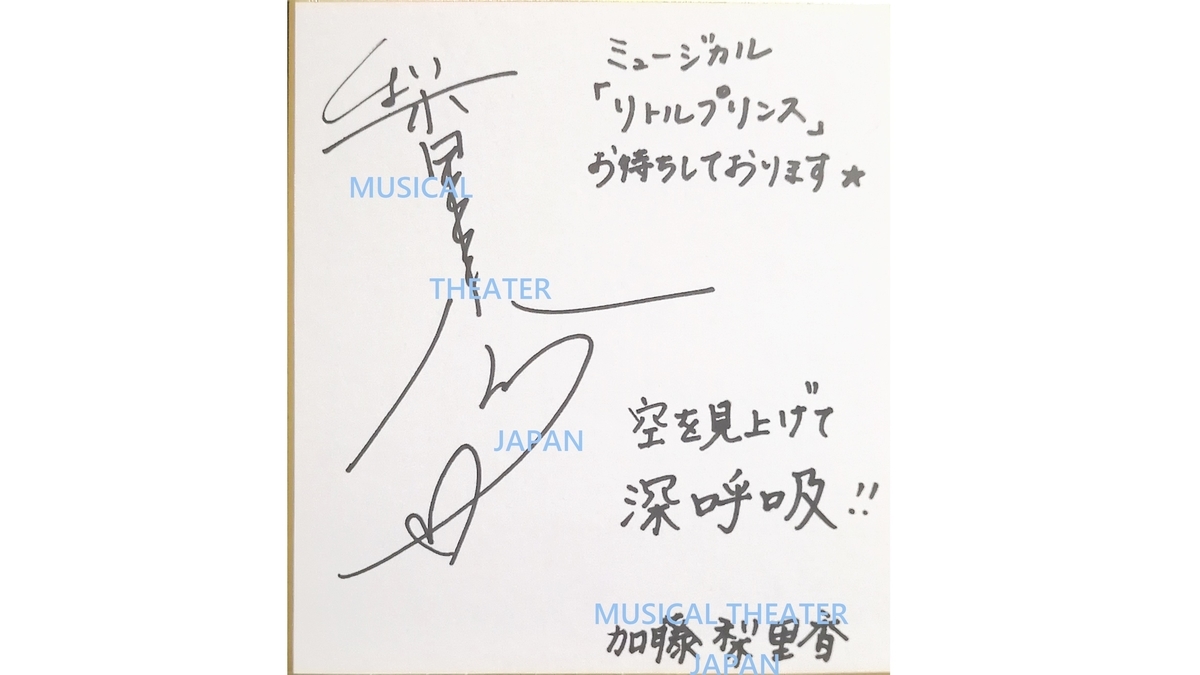 ミュージカル
「リトルプリンス」
お待ちしております★
空を見上げて
深呼吸!!
加藤梨里香
MUSICAL
THEATER
JAPAN
MUSICAL THEATER
JAPAN